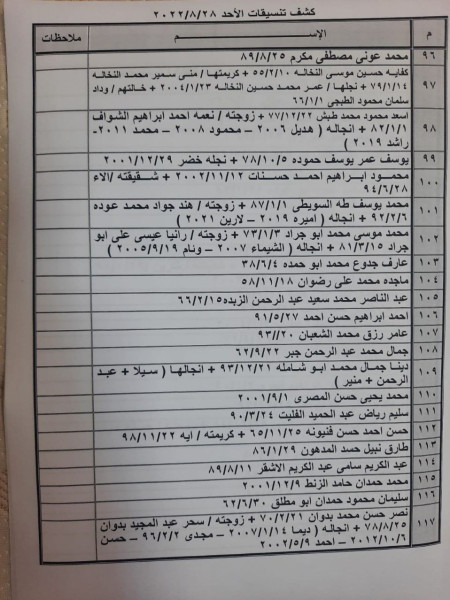 كشف تنسيقات الأحد ٢٠٢٢/٨/٢٨
م الإســـم ملاحظات
٩٦ محمد عونى مصطفى مكرم ٨٩/٨/٢٥
٩٧ كفايه حسين موسى النخاله ٥٥/٢/١٠ + كريمتها / منى سمير محمد النخاله
٧٩/١/١٤ + نجلها / عمر محمد حسين النخاله ٢٠٠٤/١/٢٣ + خالتهم / وداد
سلمان محمود الطبجى ٦٦/١/١
٩٨ اسعد محمود محمد طبش ٧٧/١٢/٢٢ + زوجته / نعمه احمد ابراهيم الشواف
٨٢/١/١ + انجاله ( هديل ٢٠٠٦ – محمود ٢٠٠٨ – محمد ٢٠١١-
راشد ٢٠١٩ )
٩٩ يوسف عمر يوسف حموده ٧٨/١٠/٥ + نجله خضر ٢٠٠١/١٢/٢٩
١٠٠ محمود ابراهيم احمد حسنات ٢٠٠٢/١١/١٢ + شقيقته /الاء
٩٤/٦/٢٨
١٠١ محمد يوسف طه السويطى ٨٧/١/١ + زوجته / هند جواد محمد عوده
٩٢/٢/٦ + انجاله ( اميره ٢٠١٩ – لارين ٢٠٢١ )
١٠٢ محمد موسى محمد ابو جراد ٧٣/١/٣ + زوجته / رانيا عيسى على ابو
جراد ٨١/٣/١٥ + انجاله ( الشيماء ٢٠٠٧ – ونام ٢٠٠٥/٩/١٩ )
١٠٣ عارف جدوع محمد ابو حمده ٣٨/٦/٤
١٠٤ ماجده محمد على رضوان ٥٨/١١/١٨
١٠٥ عبد الناصر محمد سعيد عبد الرحمن الزبده ٦٦/٢/١٥
١٠٦ احمد ابراهيم حسن احمد ٩١/٥/٢٧
١٠٧ عامر رزق محمد الشعبان ٩٣//٢٠
١٠٨ جمال محمد عبد الرحمن جبر ٦٢/٩/٢٢
١٠٩ دينا جمال محمد ابو شامله ٩٣/١٢/٢١ + انجالها ( سيلا + عبد
الرحمن + منير )
١١٠ محمد يحيى حسن المصرى ٢٠٠١/٩/١
١١١ سليم رياض عبد الحميد الفليت ٩٠/٣/٢٤
١١٢ حسن احمد حسن فنيونه ٦٥/١١/٢٥ + كريمته / ايه ٩٨/١١/٢٢
١١٣ طارق نبيل حسد المدهون ٨٦/١/٢٩
١١٤ عبد الكريم سامى عبد الكريم الاشقر ٨٩/٨/١١
١١٥ محمد حمدان حامد الزنط ٢٠٠١/١٢/٩
١١٦ سليمان محمود حمدان ابو مطلق ٦٢/٦/٣٠
١١٧ نصر حسن محمد بدوان ٧٠/٢/٢١ + زوجته / سحر عبد المجيد بدوان
٧٨/٨/٢٥ + انجاله ( ديما ٢٠٠٧/١/١٤ – مجدى ٩٦/٢/٢ – حسن
٢٠١٢/١٠/٦ – احمد ٢٠٠٢/٥/٩